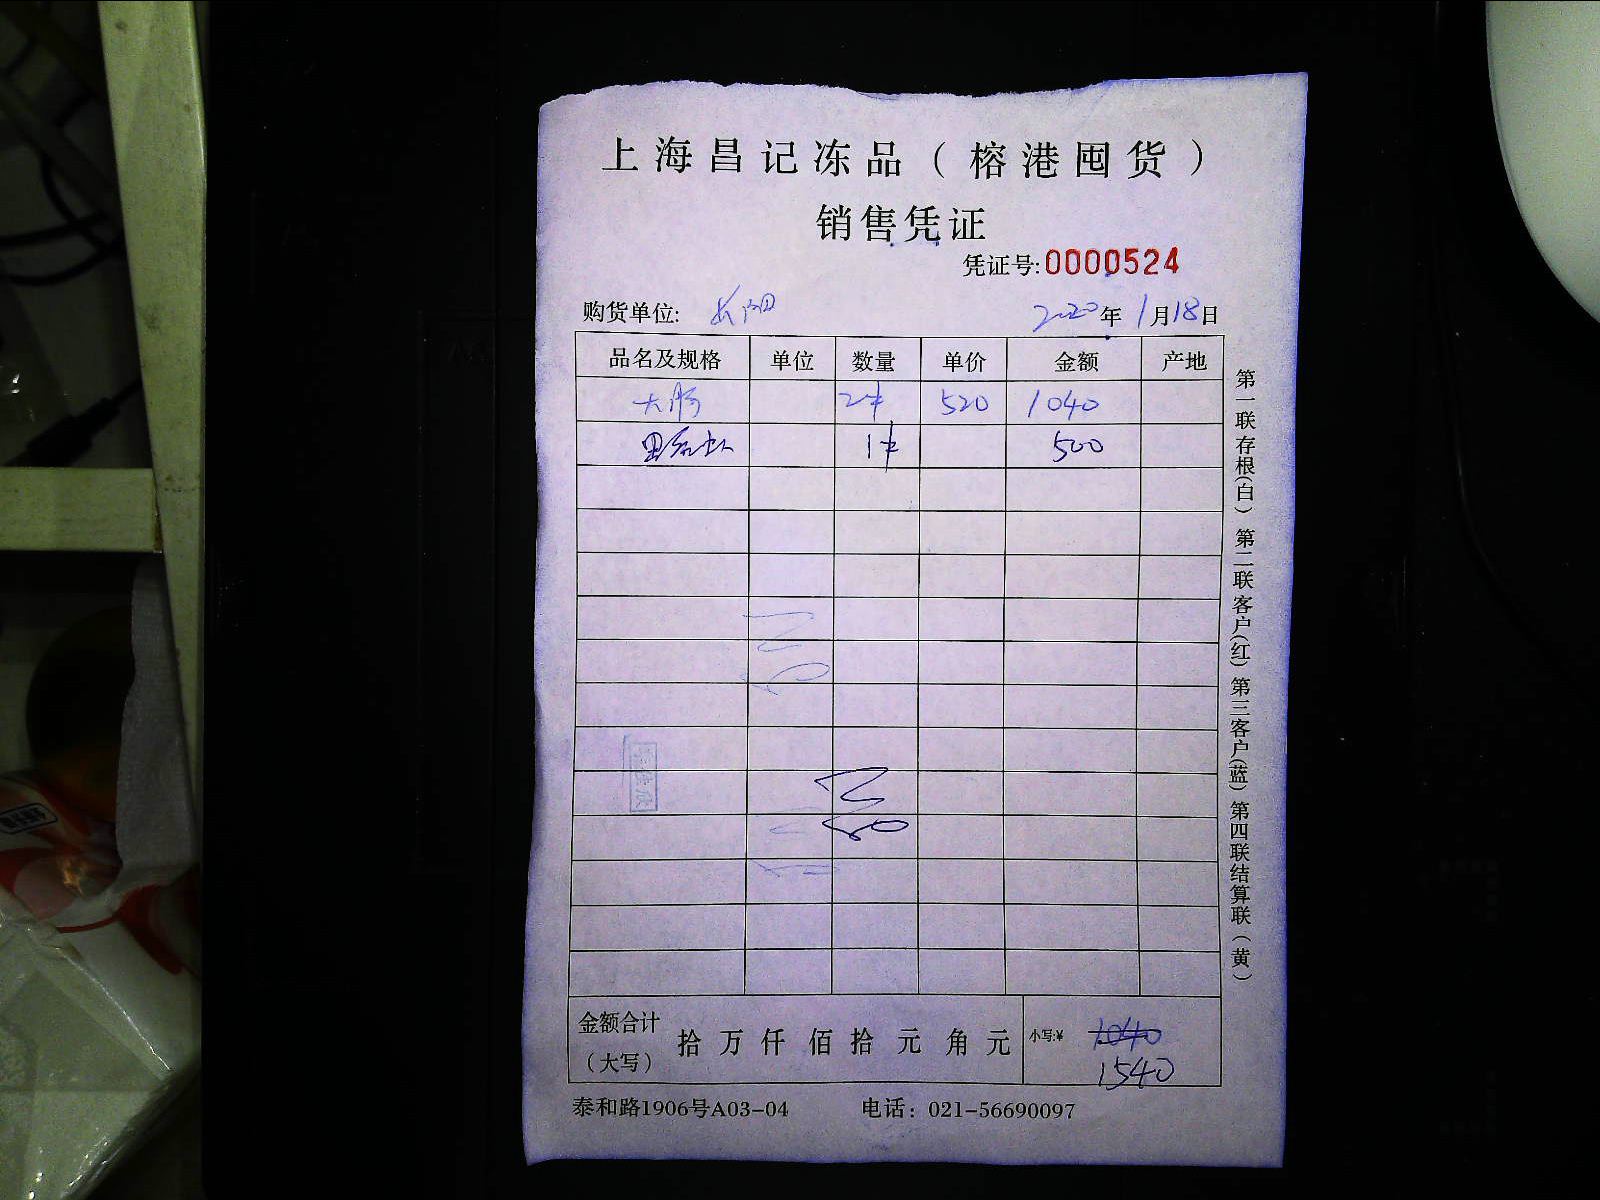 上海昌记冻品（榕港囤货）
销售凭证
凭证号:0000524
购货单位:
2020年1月18日
品名及规格 单位 数量 单价 金额 产地
大肠 2件 520 1040
1件 500
第一联存根(白) 第二联客户(红) 第三客户(蓝) 第四联结算联(黄)
金额合计
（大写）
拾万仟佰拾元角元
小写:¥ 1040
1540
泰和路1906号A03-04 电话：021-56690097